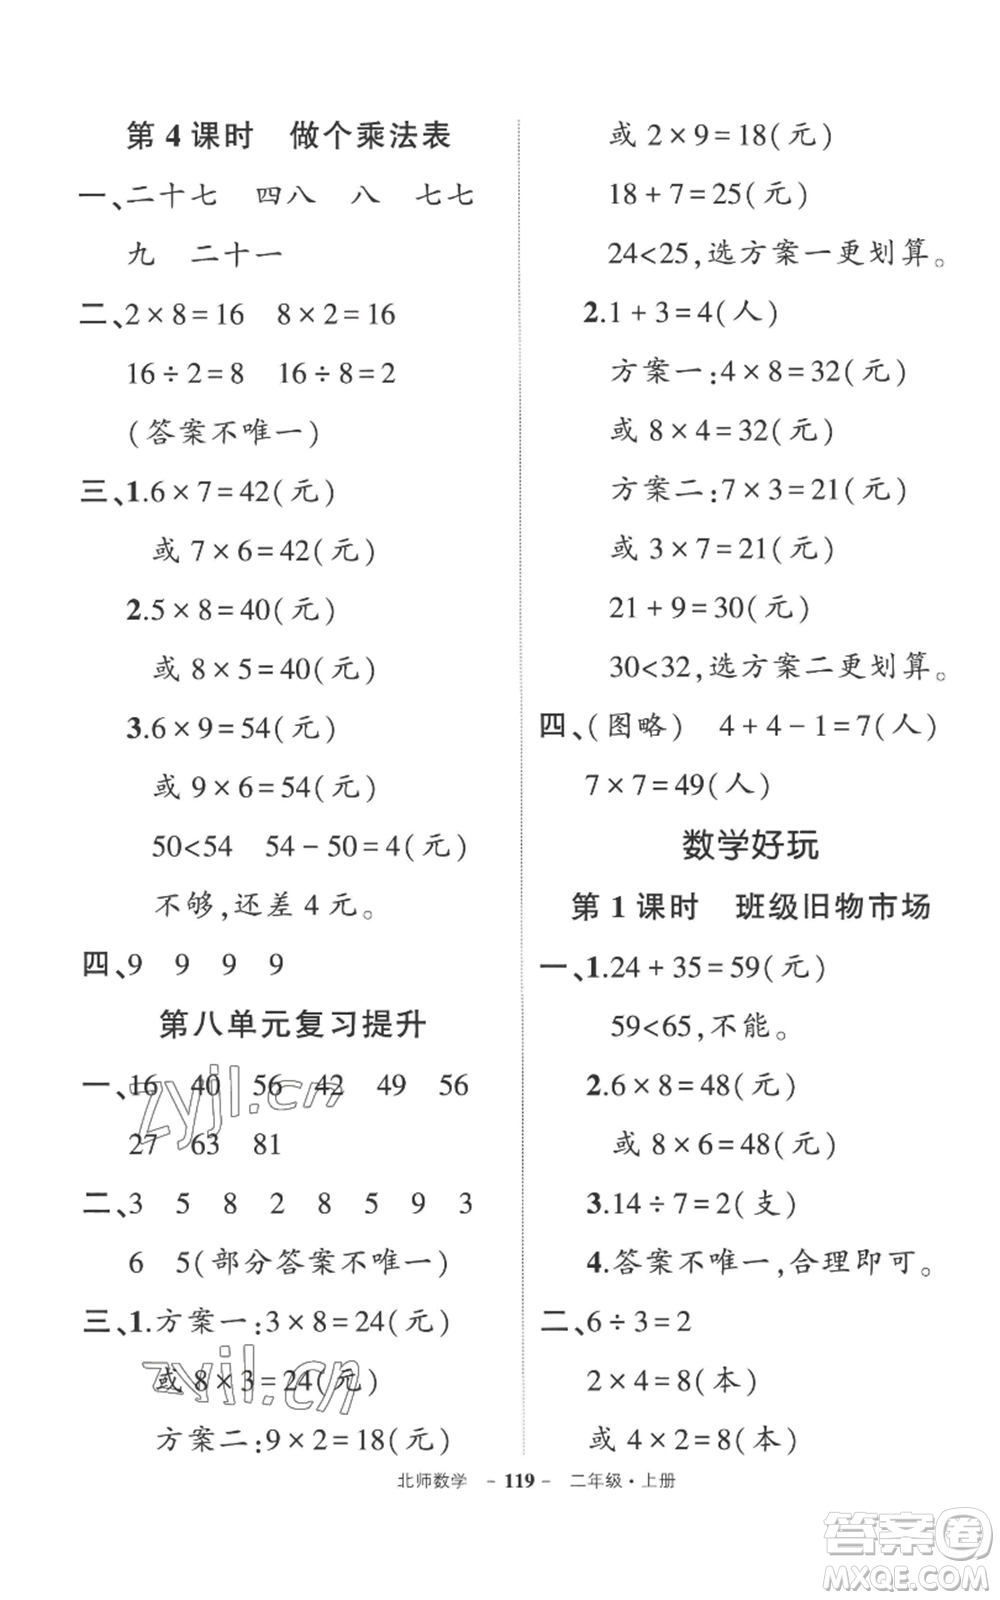 第 4 课时　做个乘法表
一、二十七　四八　八　七七
九　二十一
二、2×8=16　8×2=16
16÷2=8　16÷8=2
(答案不唯一)
三、1.6×7=42(元)
或 7×6=42(元)
2.5×8=40(元)
或 8×5=40(元)
3.6×9=54(元)
或 9×6=54(元)
50<54　54-50=4(元)
不够,还差 4 元。
四、9　9　9　9
第八单元复习提升
一、16　40　56　42　49　56
27　63　81
二、3　5　8　2　8　5　9　3
6　5(部分答案不唯一)
三、1.方案一:3×8=24(元)
或 8×3=24(元)
方案二:9×2=18(元)
或 2×9=18(元)
18+7=25(元)
24<25,选方案一更划算。
2.1+3=4(人)
方案一:4×8=32(元)
或 8×4=32(元)
方案二:7×3=21(元)
或 3×7=21(元)
21+9=30(元)
30<32,选方案二更划算。
四、(图略)　4+4-1=7(人)
7×7=49(人)
数学好玩
第 1 课时　班级旧物市场
一、1.24+35=59(元)
59<65,不能。
2.6×8=48(元)
或 8×6=48(元)
3.14÷7=2(支)
4.答案不唯一,合理即可。
二、6÷3=2
2×4=8(本)
或 4×2=8(本)
北师数学　-119-　二年级·上册
zyjl.cn
zyjl.cn
答案圈
MXQE.COM